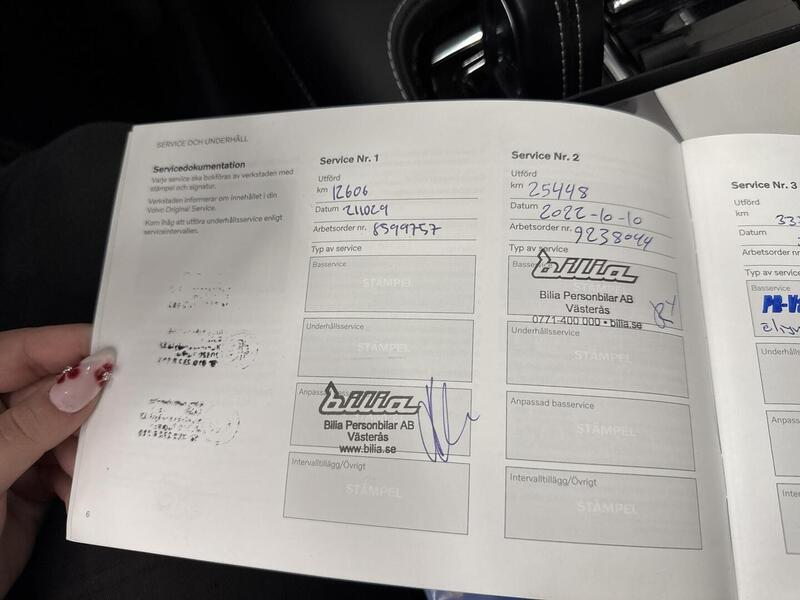 SERVICE OCH UNDERHÅLL
Servicedokumentation
Varje service ska bokföras av verkstaden med
stämpel och signatur.
Verkstaden informerar om innehållet i din
Volvo Original Service.
Kom ihåg att utföra underhållsservice enligt
serviceintervallen.
6
Service Nr. 1
Utförd
km 12606
Datum 211029
Arbetsorder nr. 8599757
Typ av service
Basservice
STÄMPEL
Underhållsservice
STÄMPEL
Anpassad
bilia
Bilia Personbilar AB
Västerås
www.bilia.se
Intervalltillägg/Övrigt
STÄMPEL
Service Nr. 2
Utförd
km 25448
Datum 2022-10-10
Arbetsorder nr. 9238044
Typ av service
Basservice
bilia
Bilia Personbilar AB
Västerås
0771-400 000 • bilia.se
Underhållsservice
STÄMPEL
Anpassad basservice
STÄMPEL
Intervalltillägg/Övrigt
STÄMPEL
Service Nr. 3
Utförd
km 333
Datum
Arbetsorder nr
Typ av service
Basservice
Underhåll
Anpassa
Interv